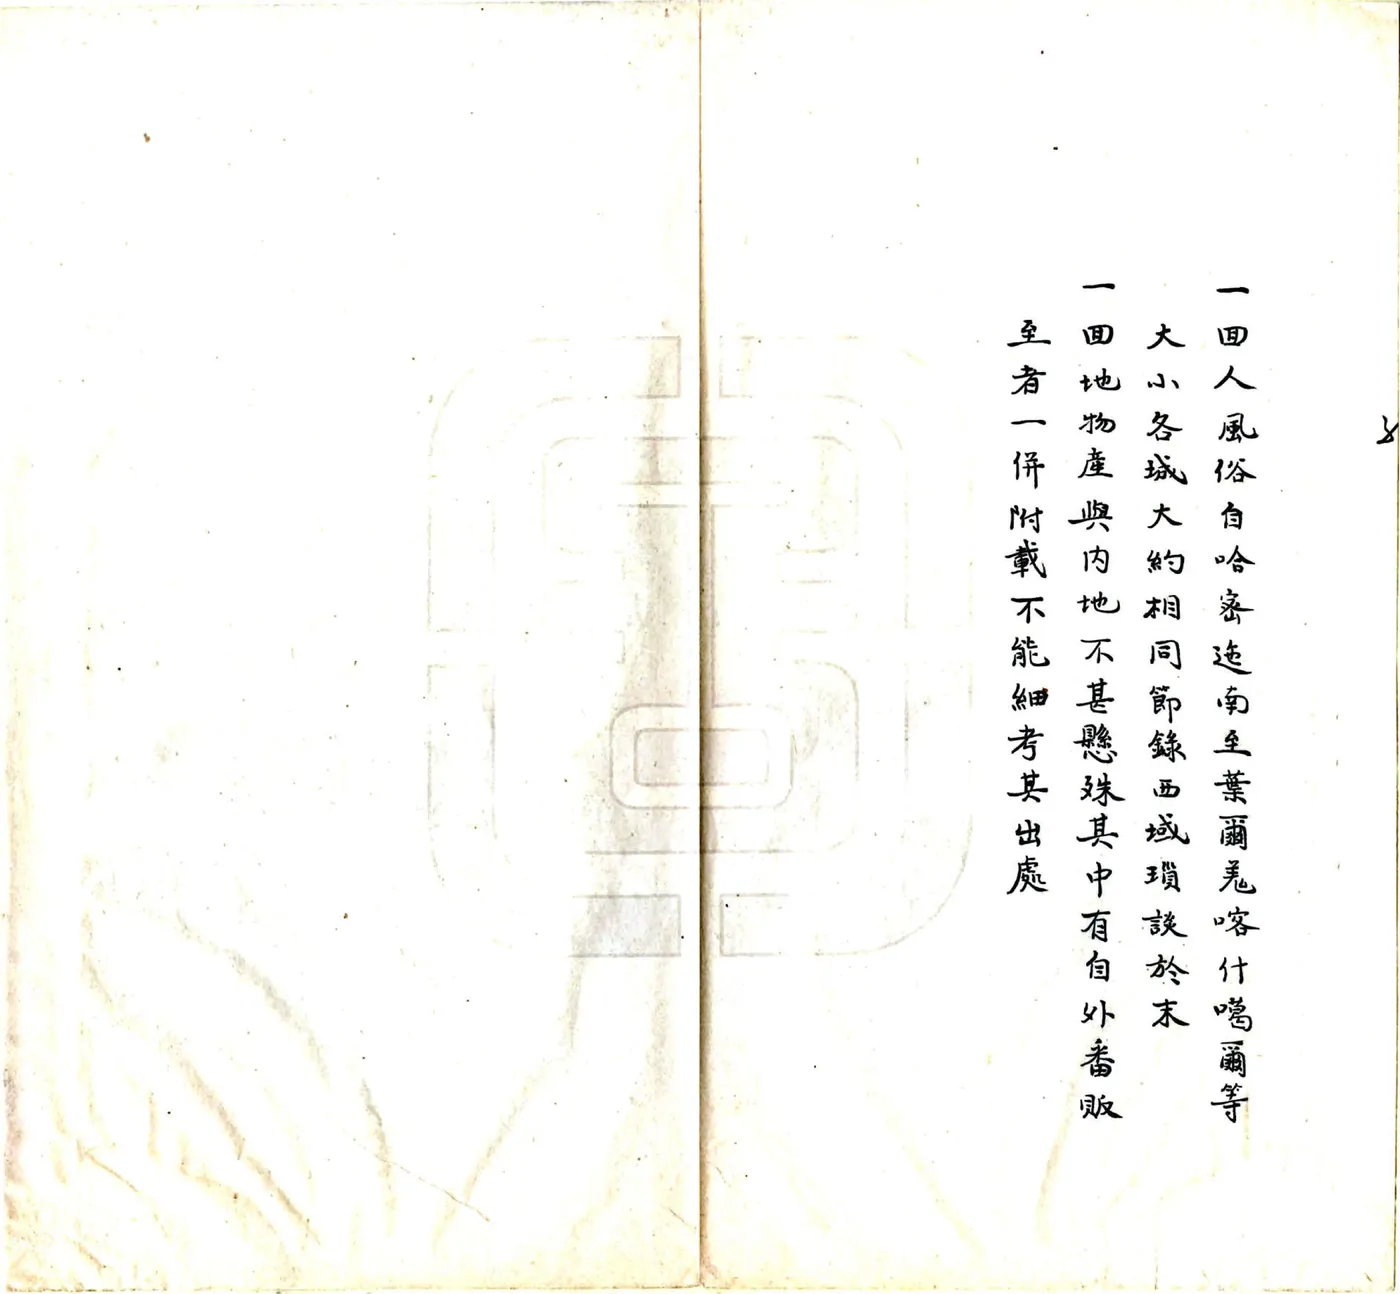 一回人風俗自哈密迤南至葉爾羌喀什噶爾等
大小各城大約相同節錄西域瑣談於末
一回地物產與内地不甚懸殊其中有自外番販
至者一併附載不能細考其出處